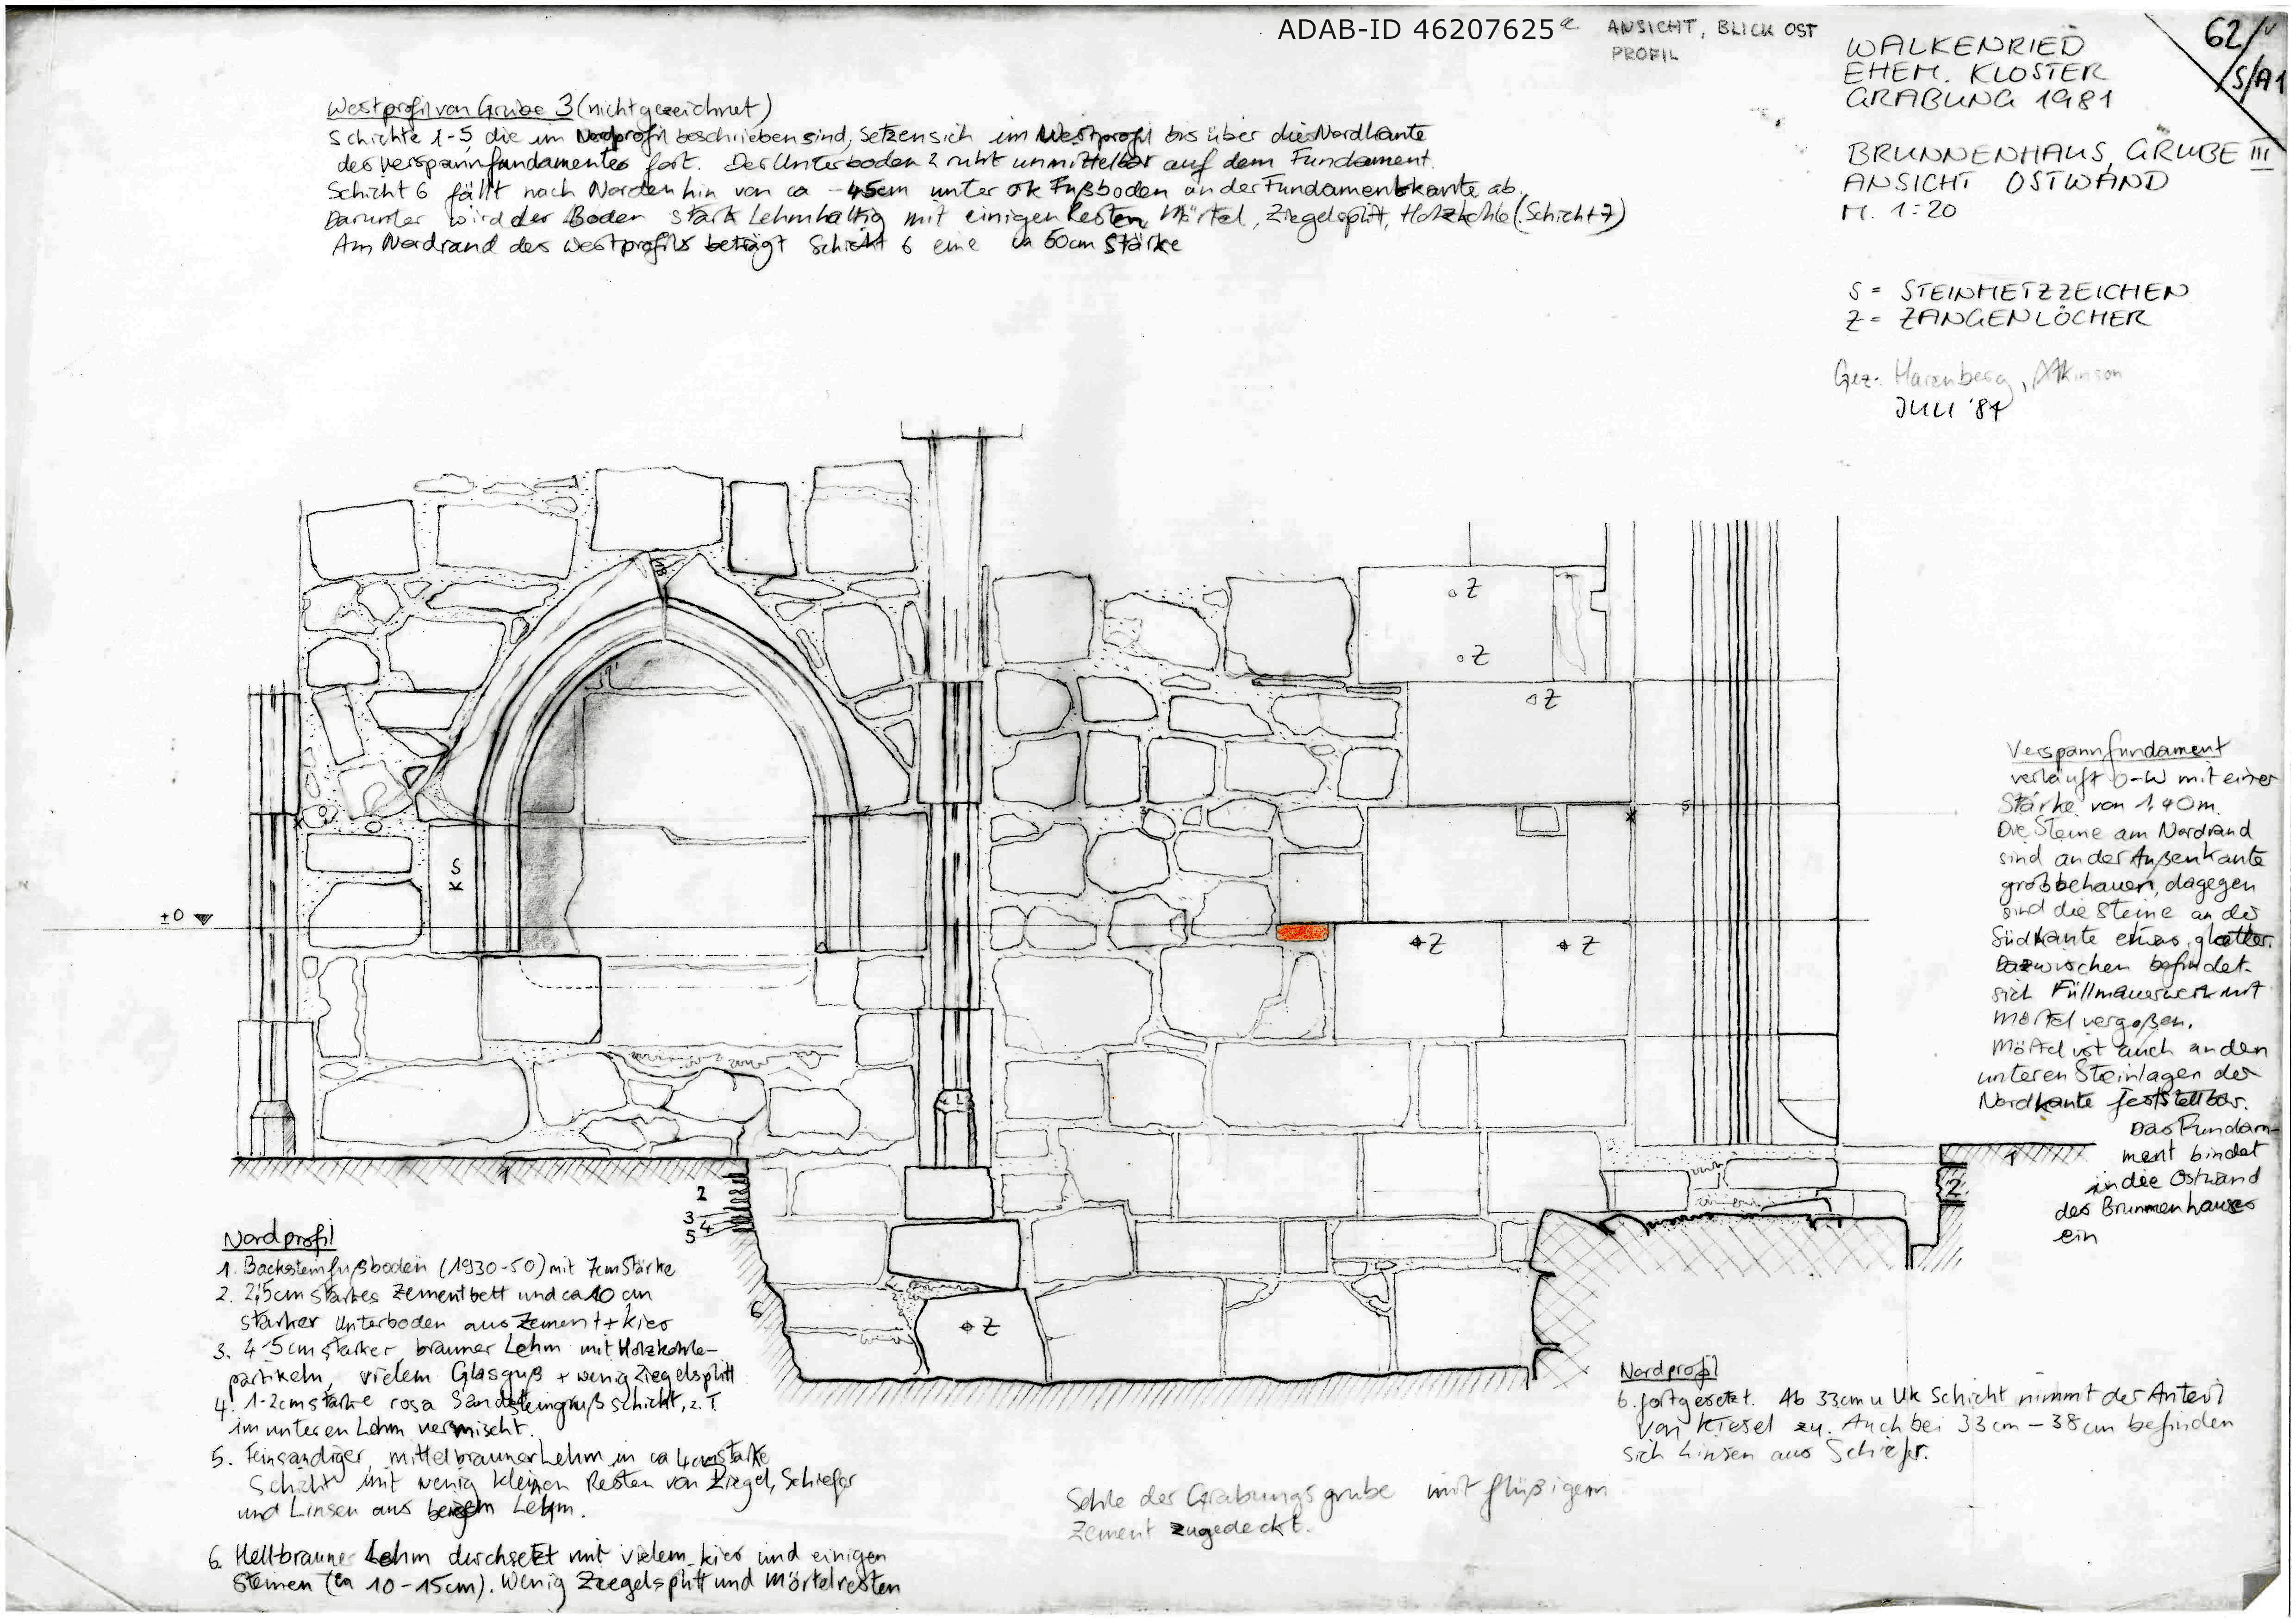 ADAB-ID 46207625 a
ANSICHT, BLICK OST
PROFIL
62/V
S/A1
WALKENRIED
EHEM. KLOSTER
GRABUNG 1981
BRUNNENHAUS, GRUBE III
ANSICHT OSTWAND
M. 1:20
S = STEINMETZZEICHEN
Z = ZANGENLÖCHER
Gez. Harenberg, Atkinson
JULI '81
Westprofil von Grube 3 (nicht gezeichnet)
Schichte 1-5, die im Nordprofil beschrieben sind, setzen sich im Westprofil bis über die Nordkante
des Verspannfundamentes fort. Der Unterboden 2 ruht unmittelbar auf dem Fundament.
Schicht 6 fällt nach Norden hin von ca -45cm unter OK Fußboden an der Fundamentkante ab.
Darunter wird der Boden stark lehmhaltig mit einigen Resten Mörtel, Ziegelsplitt, Holzkohle (Schicht 7)
Am Nordrand des Westprofils beträgt Schicht 6 eine ca 60cm Stärke
Z
Z
Z
S
S
K
±0
Z
Z
Verspannfundament
verläuft O-W mit einer
Stärke von 1.40m.
Die Steine am Nordrand
sind an der Außenkante
grob behauen, dagegen
sind die Steine an der
Südkante etwas glatter.
Dazwischen befindet
sich Füllmauerwerk mit
Mörtel vergoßen.
Mörtel ist auch an den
unteren Steinlagen der
Nordkante feststellbar.
Das Fundam-
ment bindet
in die Ostwand
des Brunnenhauses
ein
1
1
2
2
3
4
5
6
Z
Nordprofil
1. Backsteinfußboden (1930-50) mit 7cm Stärke
2. 2,5cm starkes Zementbett und ca 10 cm
starker Unterboden aus Zement + Kies
3. 4-5cm starker, brauner Lehm mit Holzkohle-
partikeln, vielem Glasguß + wenig Ziegelsplitt
4. 1-2cm starke rosa Sandsteingrußschicht, z.T
im unteren Lehm vermischt.
5. Feinsandiger, mittelbrauner Lehm in ca 4cm starke
Schicht mit wenig kleinen Resten von Ziegel, Schiefer
und Linsen aus beigem Lehm.
6. Hellbrauner Lehm durchsetzt mit vielem Kies und einigen
Steinen (ca 10-15cm). Wenig Ziegelsplitt und Mörtelresten
Nordprofil
6. fortgesetzt. Ab 33cm u Uk Schicht nimmt der Anteil
von Kiesel zu. Auch bei 33cm - 38cm befinden
sich Linsen aus Schiefer.
Sohle der Grabungsgrube mit flüßigem
Zement zugedeckt.